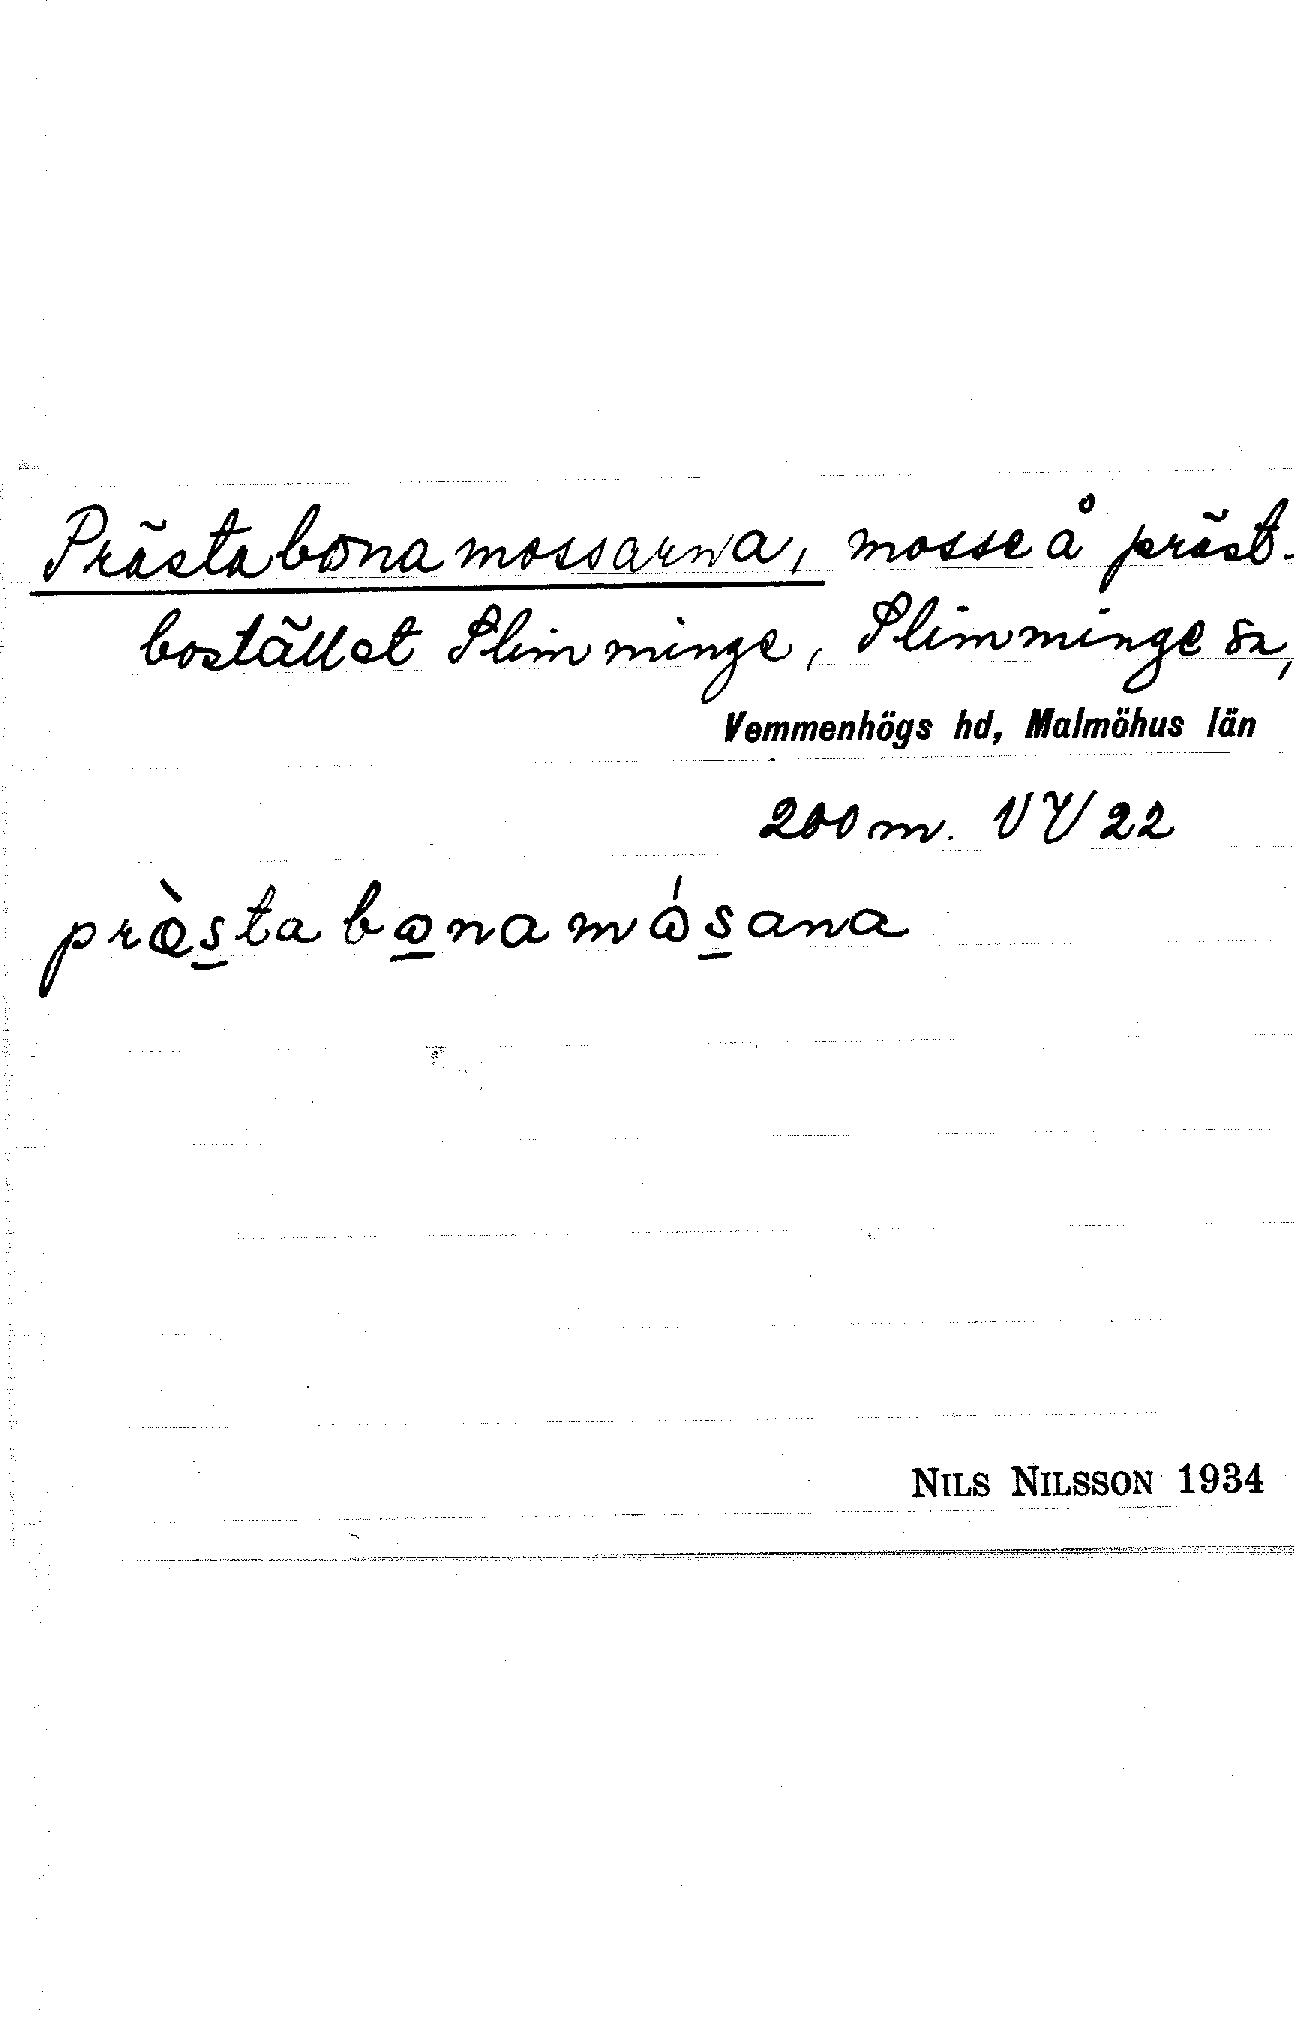 Prästabonamossarna, mosse å präst-
bostället Slimminge, Slimminge sn,
Vemmenhögs hd, Malmöhus län
200 m. VV 22
præ̀s̲tabɷ̲namɷ́s̲ana
NILS NILSSON 1934